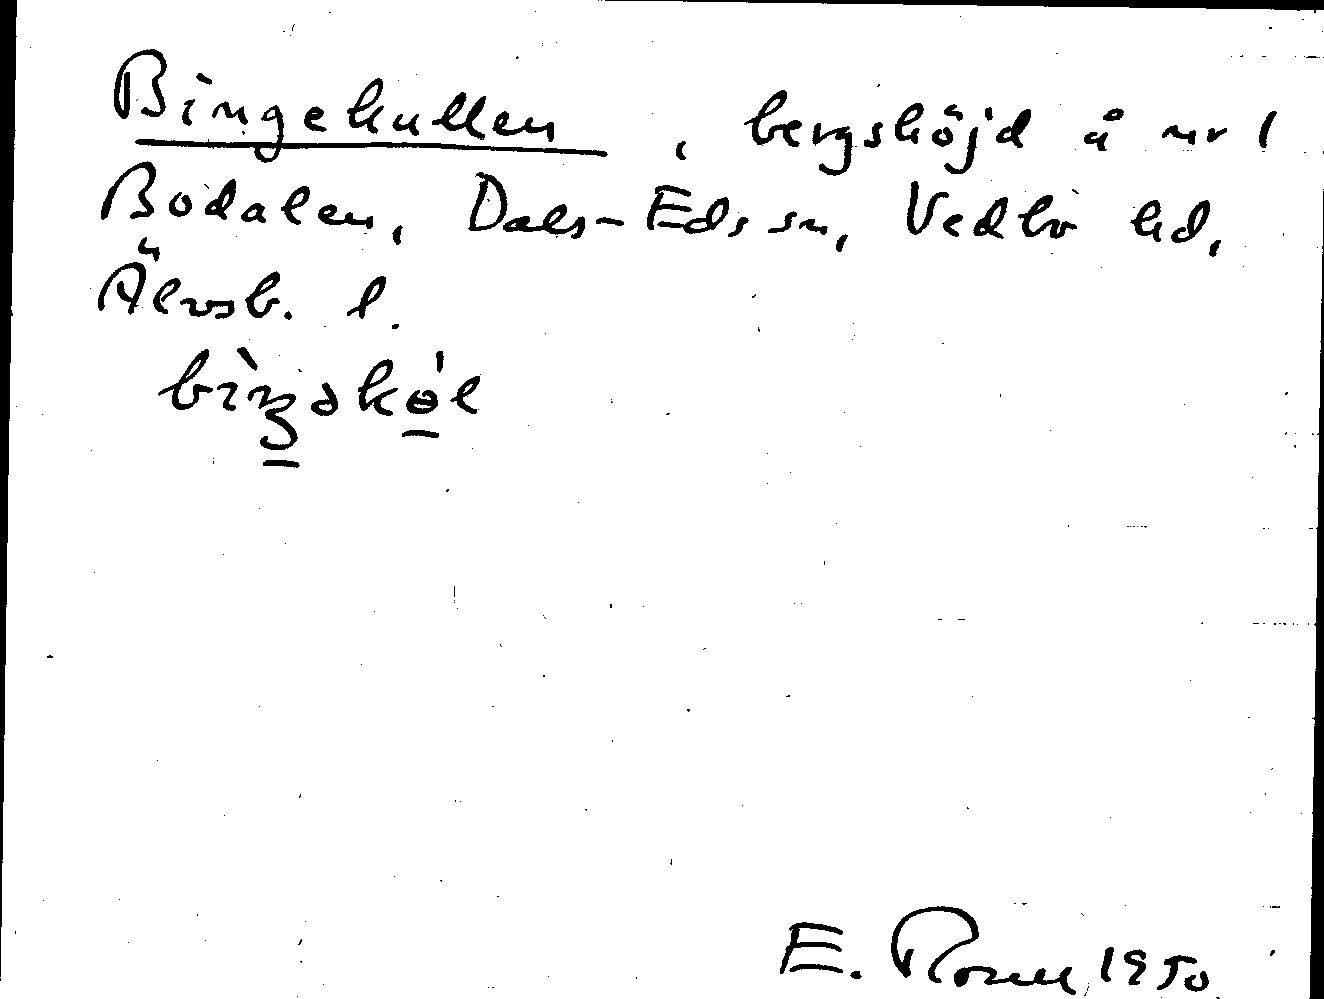 Bingekullen, bergshöjd å nr 1
Bodalen, Dals-Eds sn, Vedbo hd,
Älvsb. l.
E. 1950